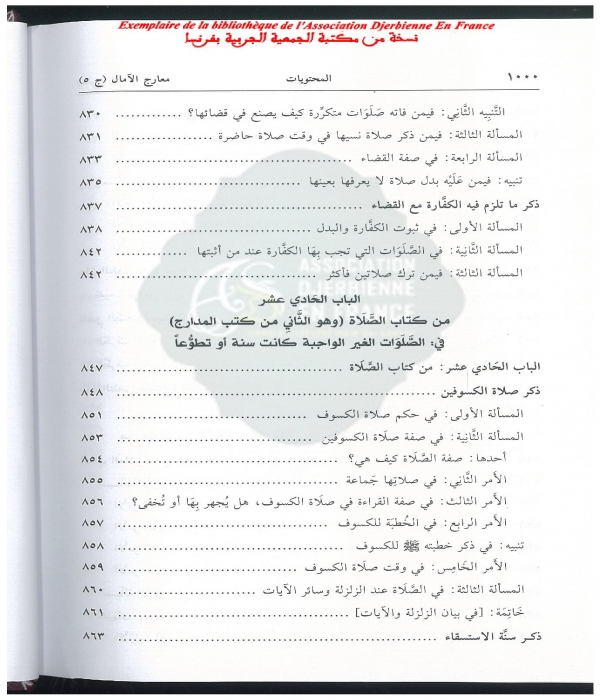 Exemplaire de la bibliothèque de l'Association Djerbienne En France
نسخة من مكتبة الجمعية الجربية بفرنسا
١٠٠٠ المحتويات معارج الآمال (ج ٥)
التَّنبيه الثَّاني: فيمن فاته صَلَوَات متكرِّرة كيف يصنع في قضائها؟ ............. ٨٣٠
المسألة الثالثة: فيمن ذكر صلاة نسيها في وقت صلاة حاضرة ................... ٨٣١
المسألة الرابعة: في صفة القضاء ........................................ ٨٣٣
تنبيه: فيمن عَلَيْه بدل صلاة لا يعرفها بعينها ............................. ٨٣٥
ذكر ما تلزم فيه الكفَّارة مع القضاء ........................................ ٨٣٧
المسألة الأولى: في ثبوت الكفَّارة والبدل ................................. ٨٣٨
المسألة الثَّانِية: في الصَّلَوَات التي تجب بِهَا الكفَّارة عند من أثبتها ............ ٨٤٢
المسألة الثالثة: فيمن ترك صلاتين فأكثر ................................. ٨٤٢
الباب الحَادي عشر
من كتاب الصَّلَاة (وهو الثَّانِي من كتب المدارج)
في: الصَّلَوَات الغير الواجبة كانت سنة أو تطوُّعاً
الباب الحَادي عشر: من كتاب الصَّلَاة .................................. ٨٤٧
ذكر صلاة الكسوفين ................................................ ٨٤٨
المسألة الأولى: في حكم صلاة الكسوف ................................. ٨٥١
المسألة الثَّانِية: في صفة صلَاة الكسوفين ................................ ٨٥٣
أحدها: صفة الصَّلَاة كيف هي؟ ...................................... ٨٥٤
الأمر الثَّانِي: في صلاتِها جَماعة ...................................... ٨٥٥
الأمر الثالث: في صفة القراءة في صلَاة الكسوف، هل يُجهر بِهَا أو تُخفى؟ . ٨٥٦
الأمر الرابع: في الخُطبَة للكسوف ..................................... ٨٥٧
تنبيه: في ذكر خطبته ﷺ للكسوف ..................................... ٨٥٨
الأمر الخَامِس: في وقت صلَاة الكسوف ................................ ٨٥٩
المسألة الثالثة: في الصَّلَاة عند الزلزلة وسائر الآيات ...................... ٨٦٠
خَاتِمَة: [في بيان الزلزلة والآيات] ..................................... ٨٦١
ذكر سنَّة الاستسقاء ................................................ ٨٦٣
ASSOCIATION
DJERBIENNE
EN FRANCE